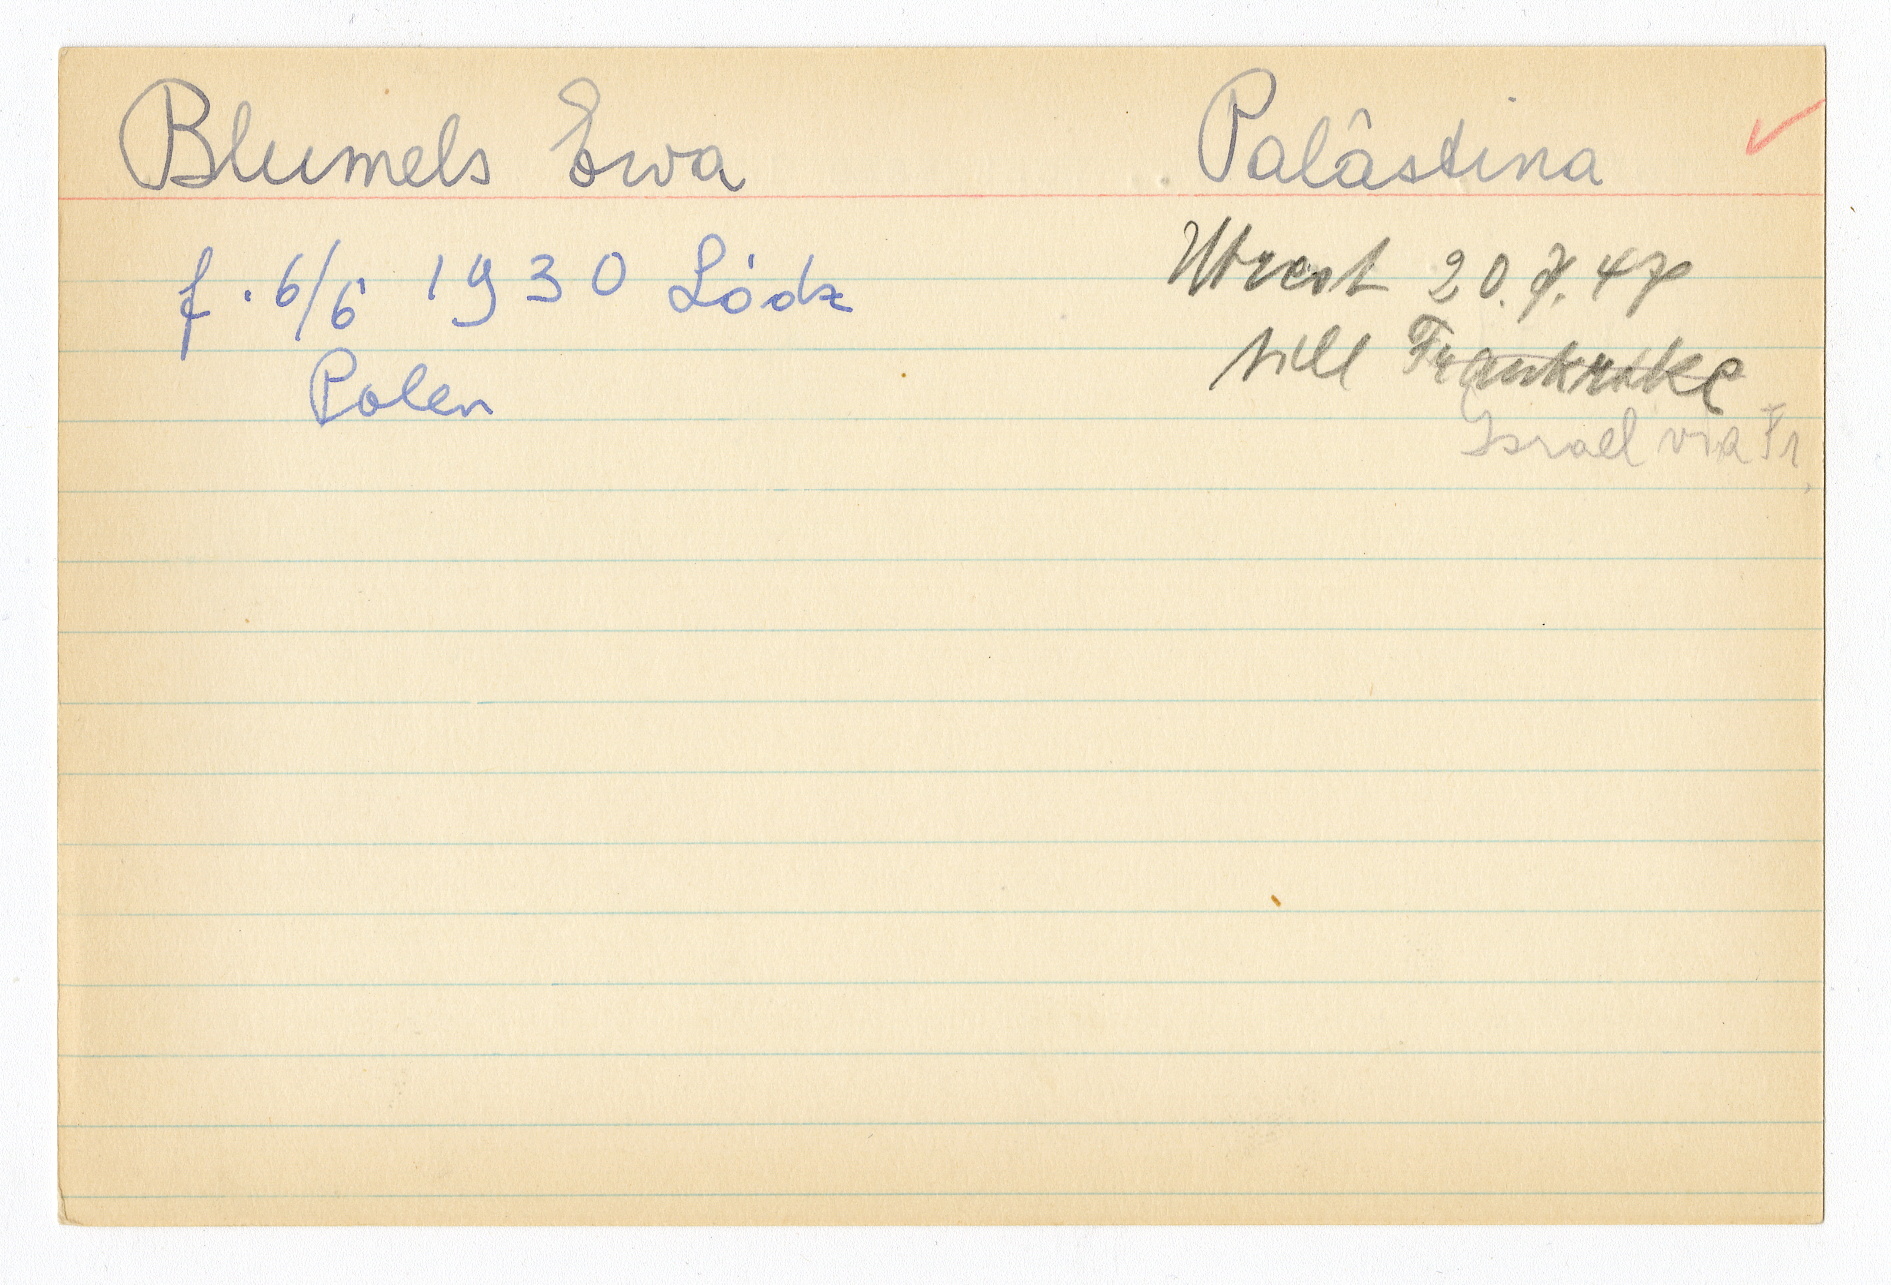 Blumels Ewa
Palästina
f. 6/6 1930 Lódz
Polen
Utrest 20.7.47
till Frankrike
Israel via Fr